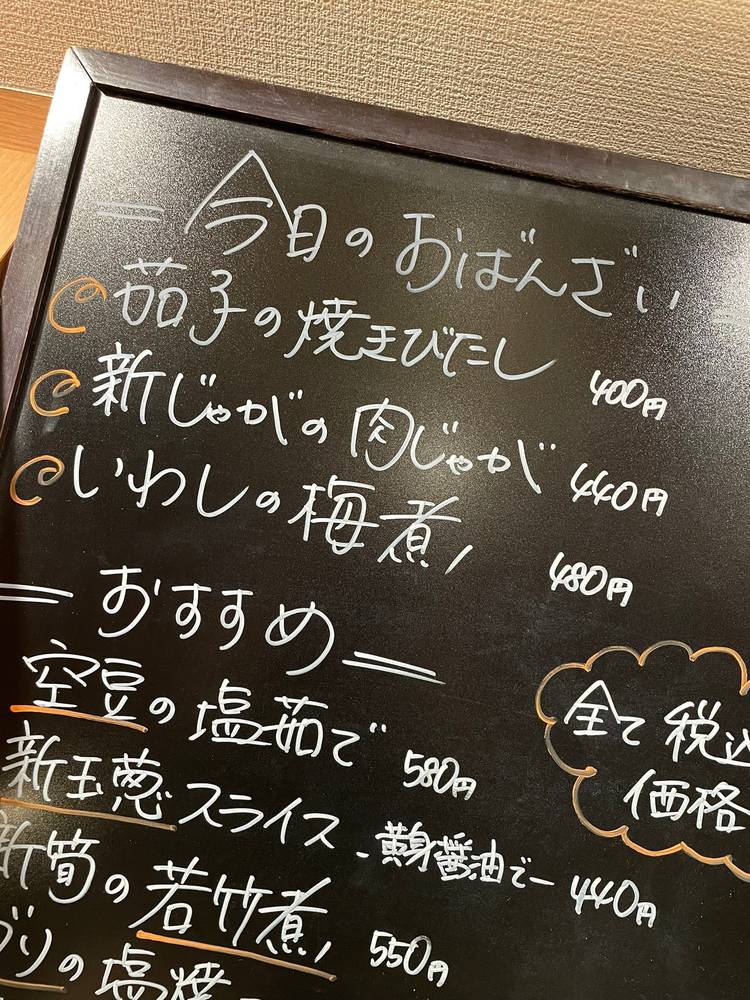 今日のおばんざい
茄子の焼きびたし 400円
新じゃがの肉じゃが 440円
いわしの梅煮 480円
おすすめ
空豆の塩茹で 580円
新玉葱スライス -黄身醤油で- 440円
新筍の若竹煮 550円
ブリの塩焼
全て税込
価格